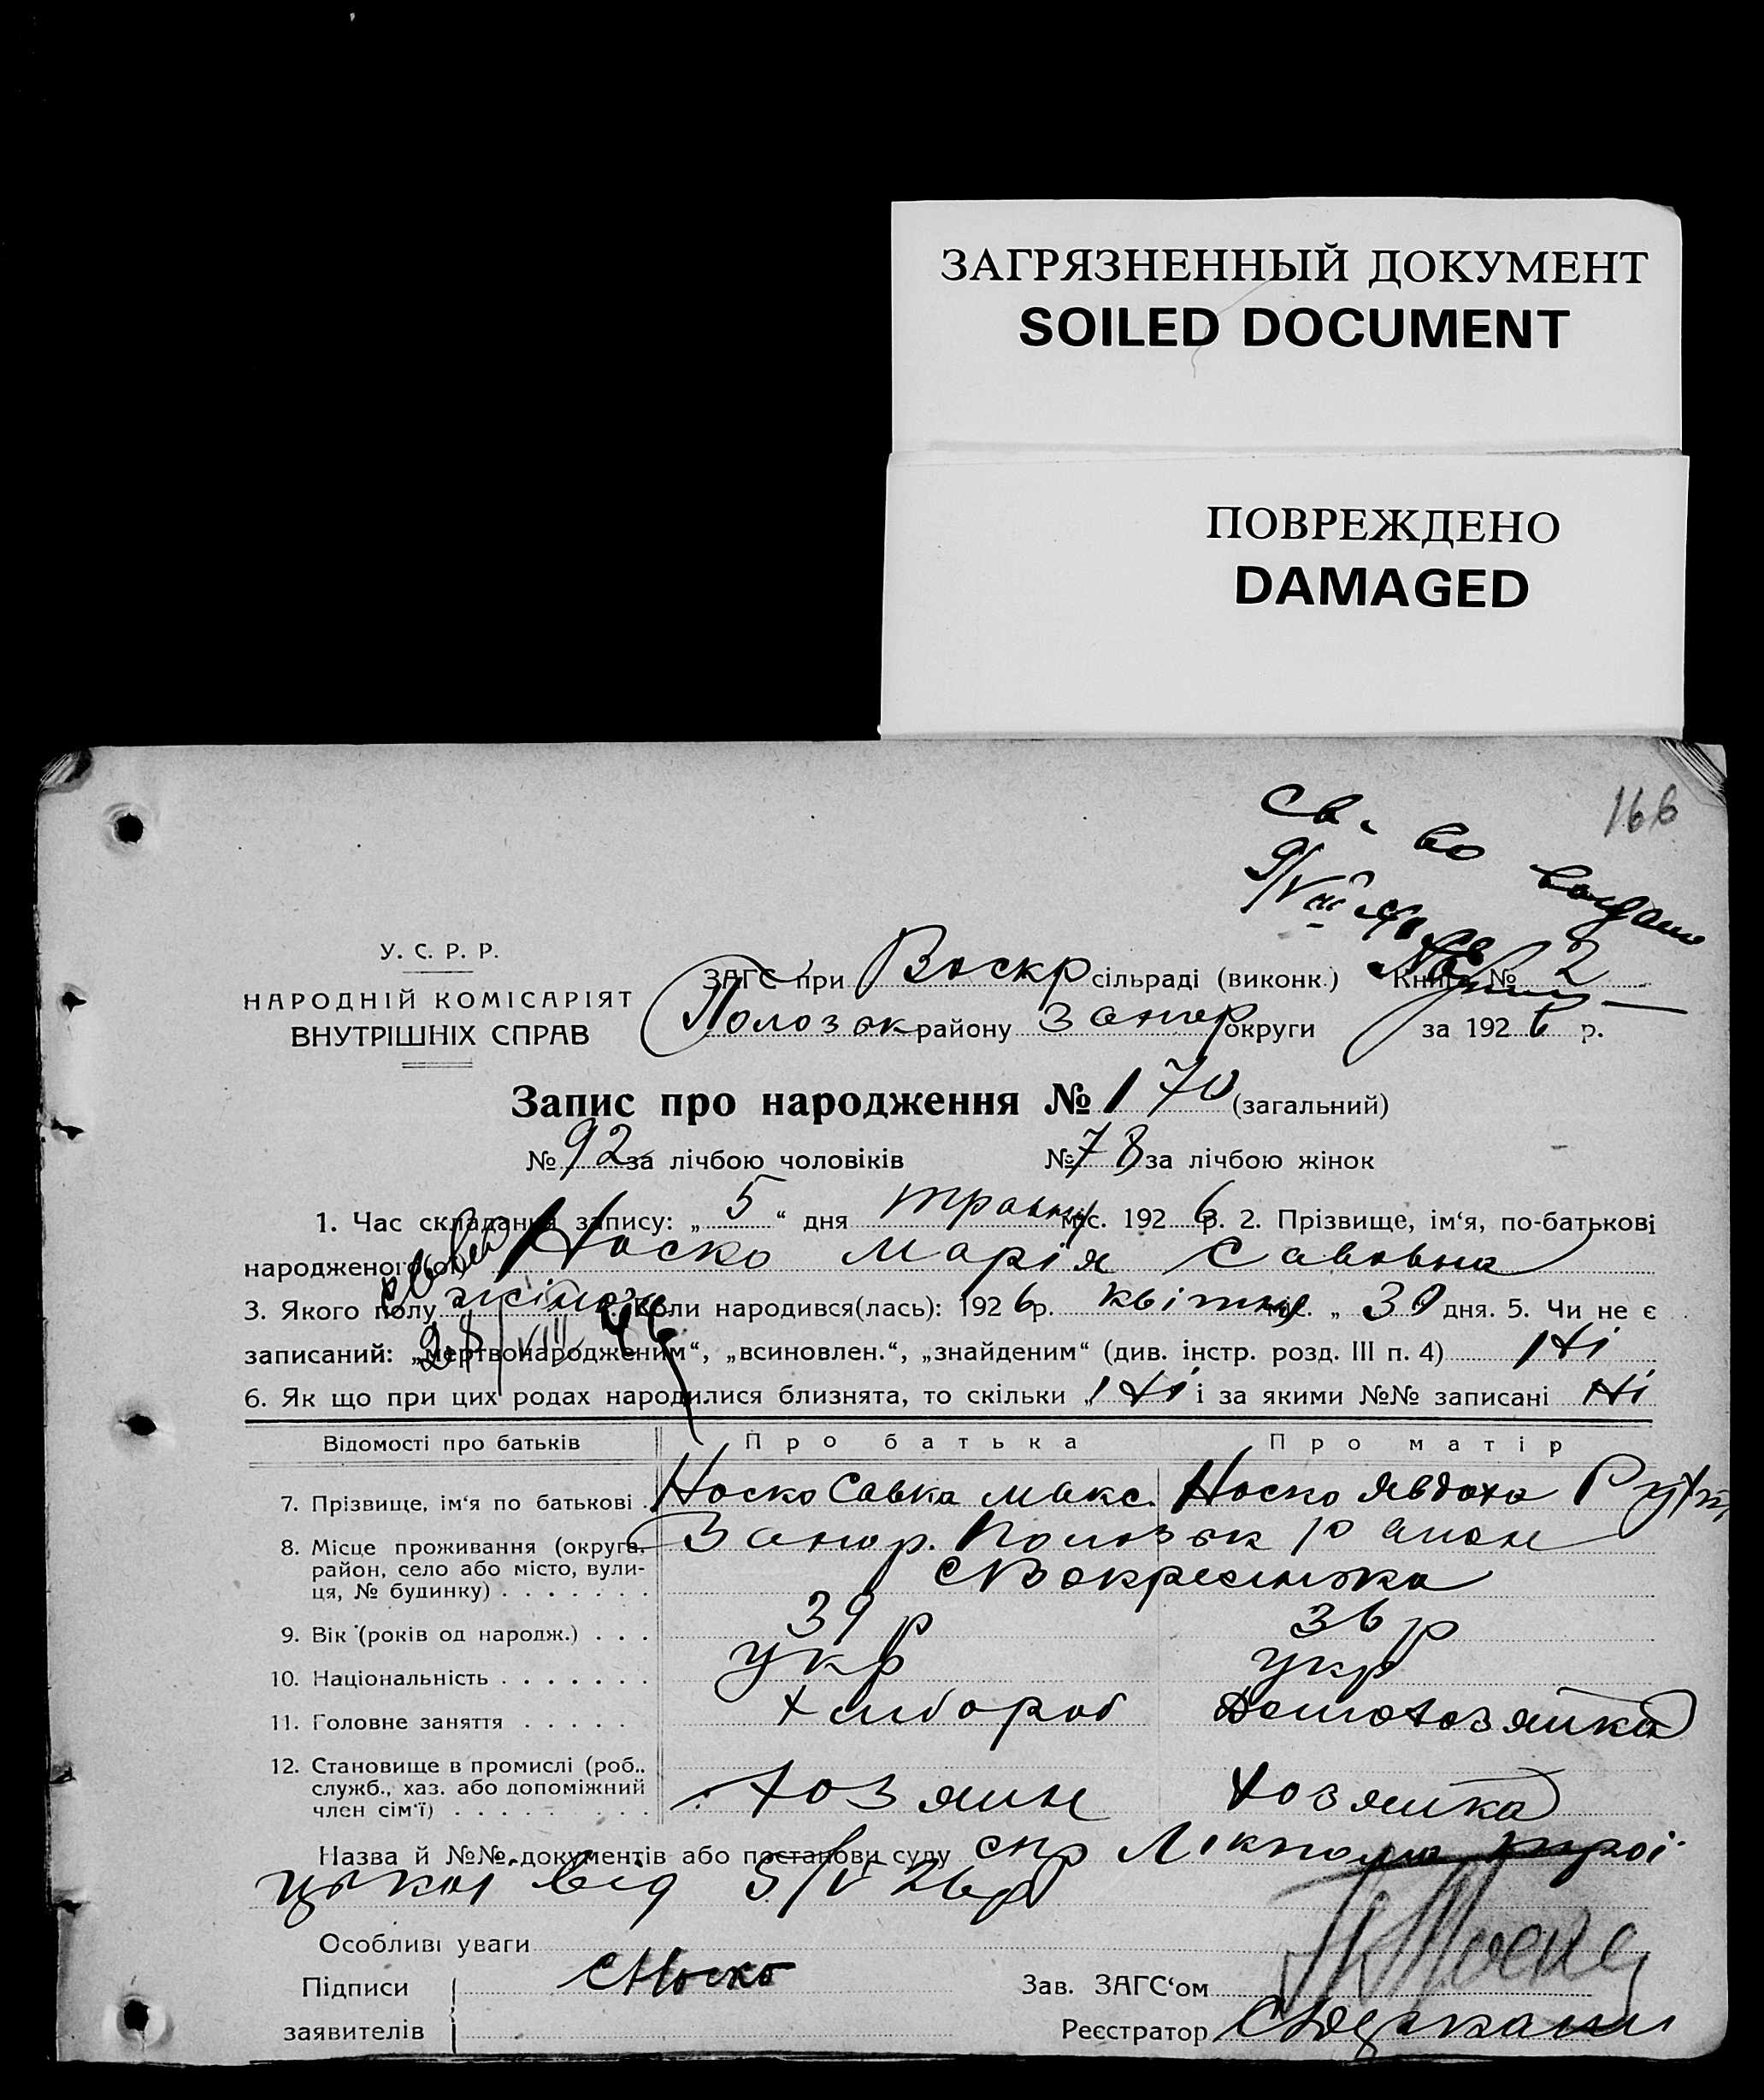 ЗАГРЯЗНЕННЫЙ ДОКУМЕНТ
SOILED DOCUMENT
ПОВРЕЖДЕНО
DAMAGED
166
Св-во
У. С. Р. Р.
НАРОДНІЙ КОМІСАРІЯТ
ВНУТРІШНІХ СПРАВ
ЗАГС при Воскр сільраді (виконк.) Книга № 2
Полозьк району Запор округи за 1926 р.
Запис про народження № 170 (загальний)
№ 92 за лічбою чоловіків № 78 за лічбою жінок
1. Час складання запису: „ 5 “ дня травня міс. 1926 р. 2. Прізвище, ім‘я, по-батькові
народженого(ої) Носко Марія Савовна
3. Якого полу жіноч 4. Коли народився(лась): 1926 р. квітня міс. „ 30 дня. 5. Чи не є
записаний: „мертвонародженим“, „всиновлен.“, „знайденим“ (див. інстр. розд. III п. 4) Ні
6. Як що при цих родах народилися близнята, то скільки „ Ні і за якими №№ записані Ні
Відомості про батьків Про батька Про матір
7. Прізвище, ім‘я по батькові Носко Савка Макс. Носко Явдоха
8. Місце проживання (округа, Запор. Полозьк район
район, село або місто, вули- с Воскресенька
ця, № будинку) . . . . . . .
9. Вік (років од народж.) . . . 39 р 36 р
10. Національність . . . . . . . укр укр
11. Головне заняття . . . . . хлибороб Домохозяйка
12. Становище в промислі (роб.,
служб., хаз. або допоміжний хозяин хозяйка
член сім‘ї) . . . . . . . . .
Назва й №№ документів або постанови суду спр
від 5/V 26 р
Особливі уваги
Підписи С Носко Зав. ЗАГС‘ом
заявителів Реєстратор